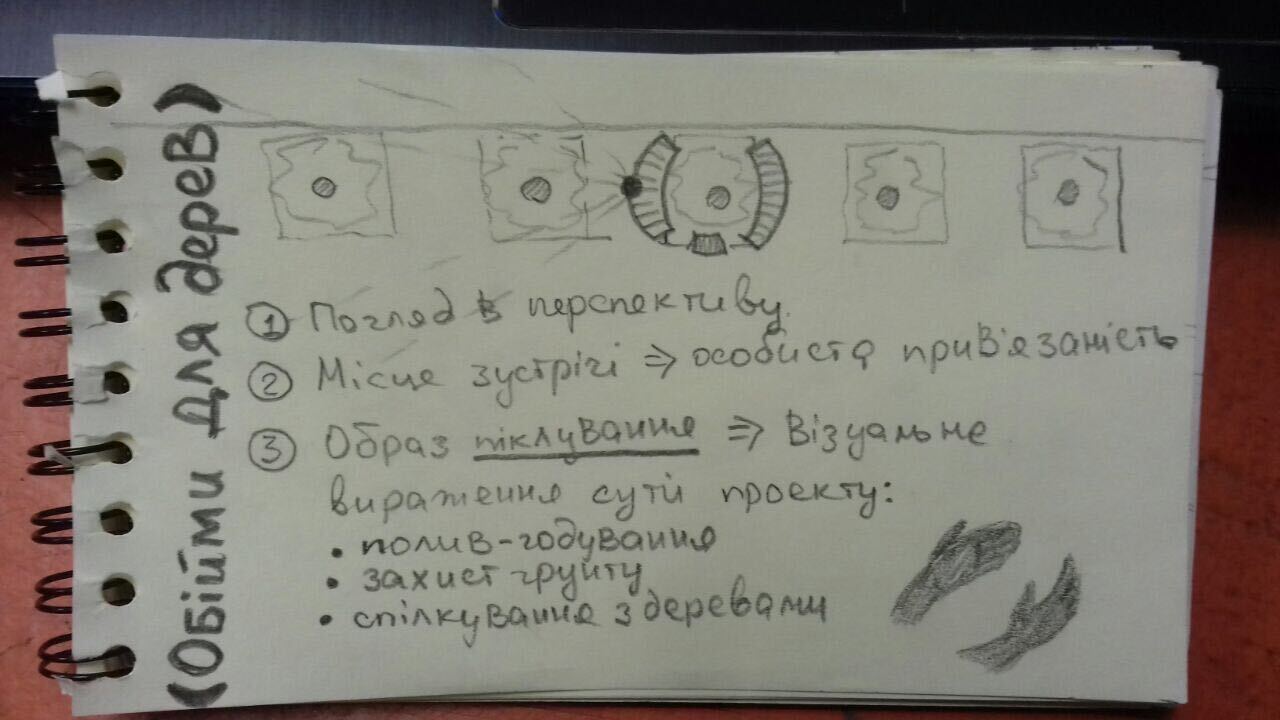 (Обійми Для дерев)
① Погляд в перспективу
② Місце зустрічі ⇒ особиста прив'язаність
③ Образ піклування ⇒ Візуальне
вираження суті проекту:
• полив-годування
• захист грунту
• спілкування з деревами